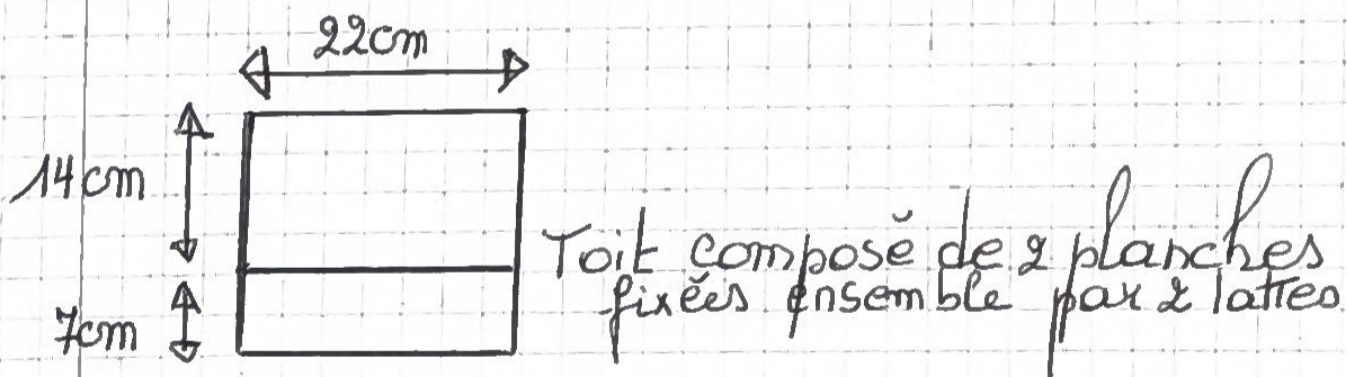 22cm
14cm
Toit composé de 2 planches
fixées ensemble par 2 lattes
7cm